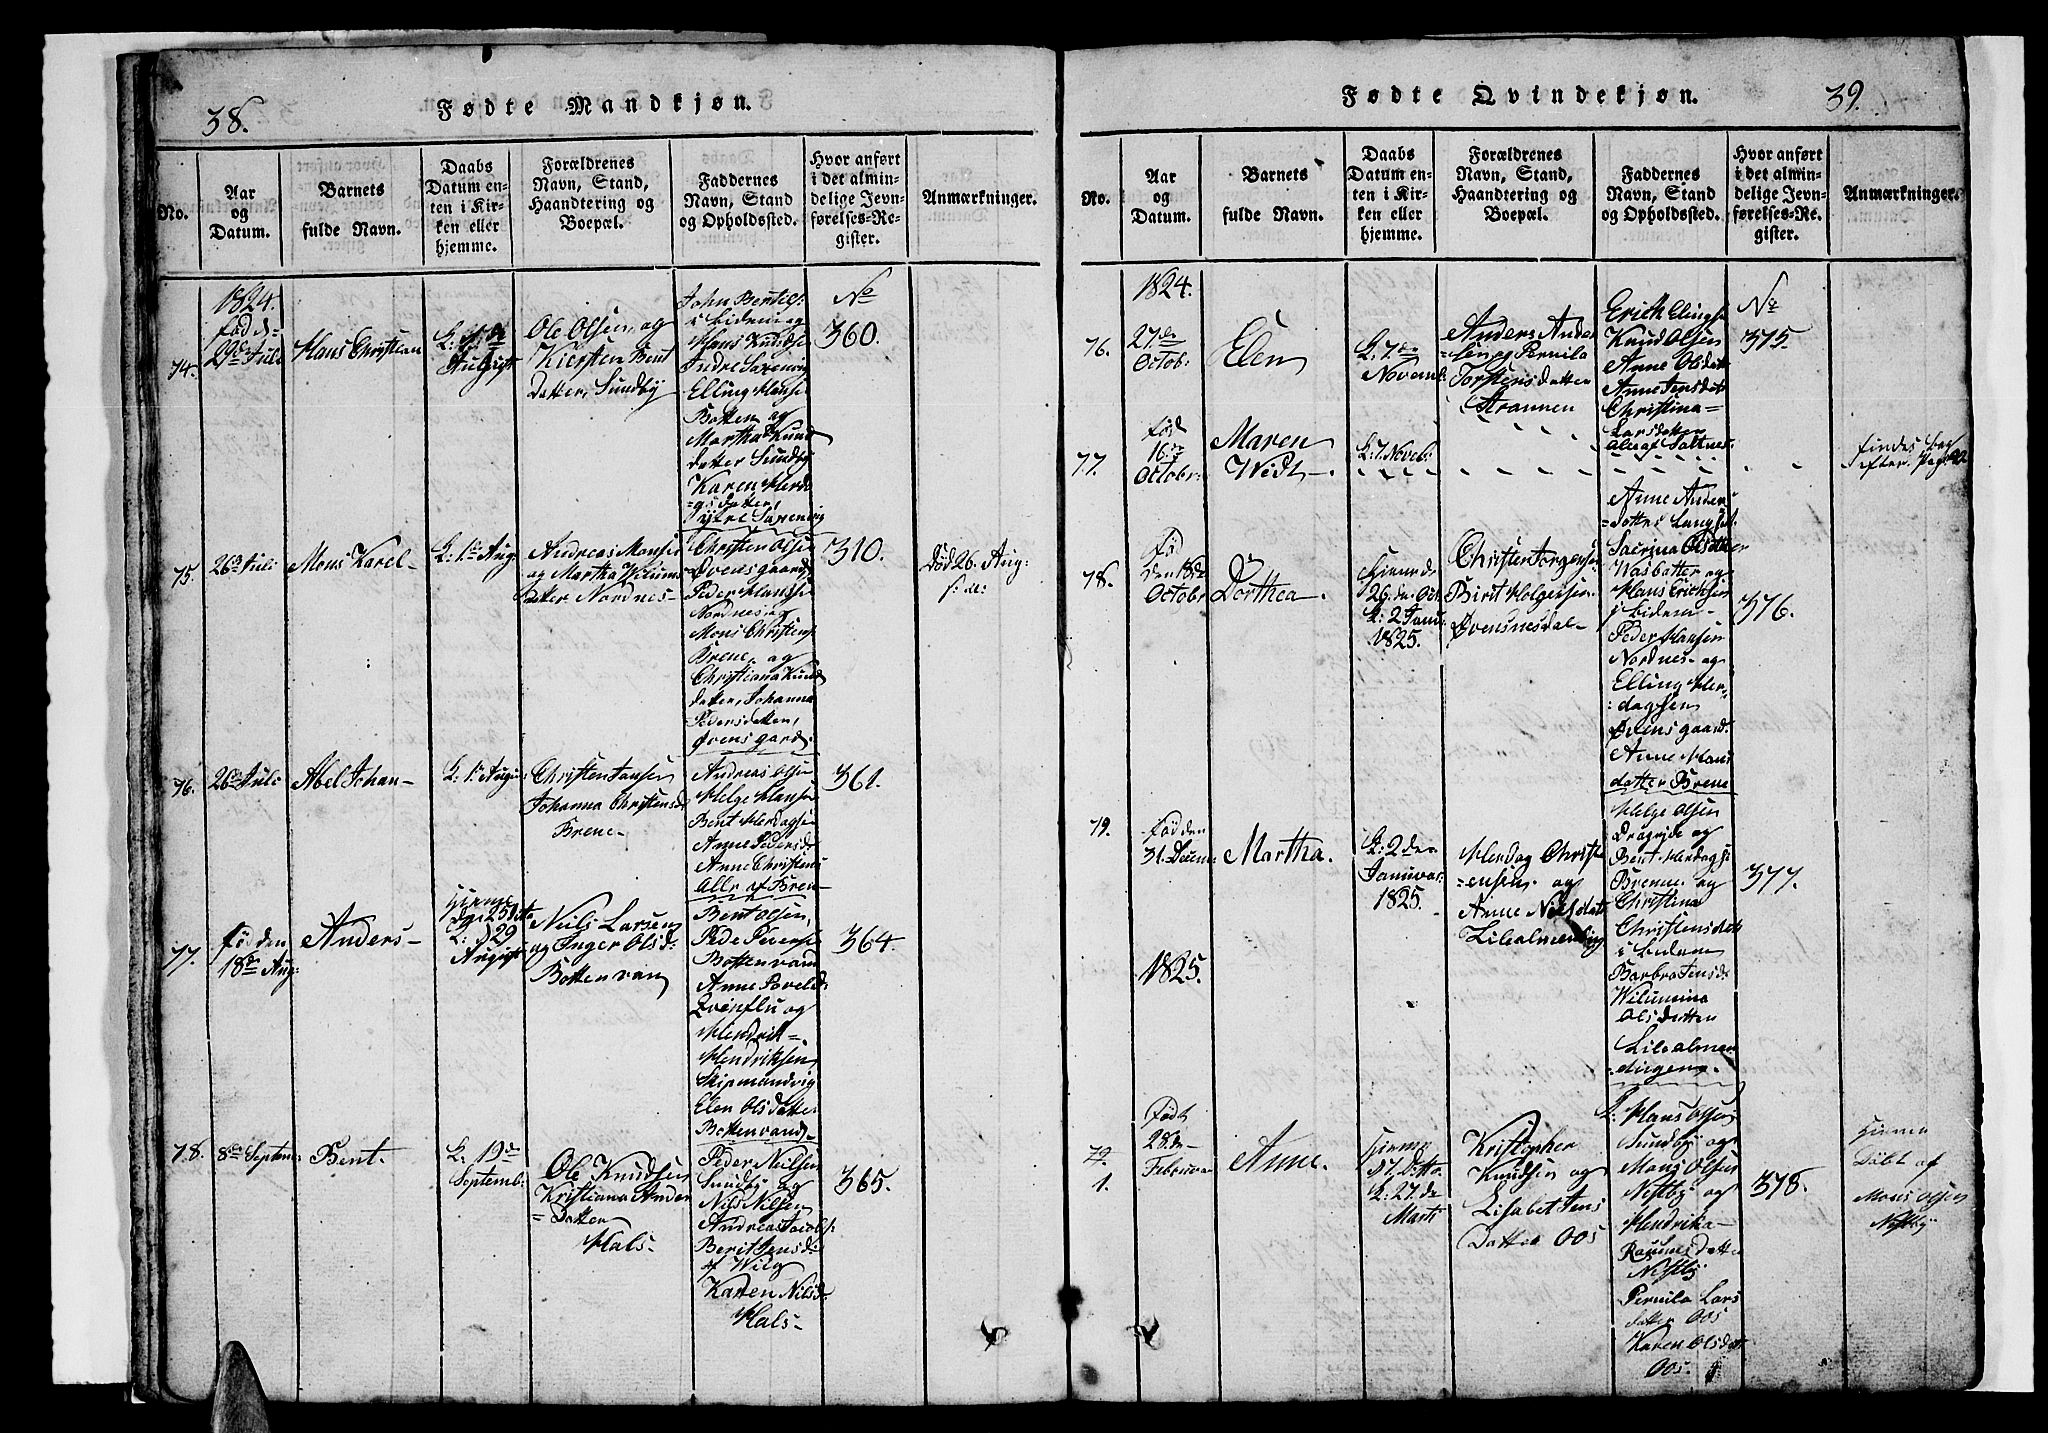 38.
Fødte Mandkjøn.
No.
Aar og Datum.
Barnets fulde Navn.
Daabs Datum enten i Kirken eller hjemme.
Forældrenes Navn, Stand, Haandtering og Boepæl.
Faddernes Navn, Stand og Opholdssted.
Hvor anført i det almindelige Jevnførelses-Register.
Anmærkninger.
74.
1824.
fød d:
29de Juli
Hans Christian
K: 1de
August
Ole Olsen, og
Kiersten Bent
Datter, Sundby
John Bentes:
ibidem og
Hans Knuds:
Elling Hans:
Botten og
Martha Knud
datter Sundby
Karen Herda
gsdatter,
No
360.
75.
26de Juli
Mons Karel
K: 1de Aug:
Andreas Monsen
og Martha Wilums
datter Nordnes
Christen Olsen
Øvensgaard
Peder Hanssen
Nordnes og
Mons Christens
Brene og
Christiana Knud
datter, Johanna
Pedersdatter,
Øvensgard
310.
Død 26. Aug:
76.
26de Juli
Abel Johan
K: 1de August
Christen Jansen
Johanna Christensd
Brene
Andreas Olsen
Helge Hansen
Bent Herdagsen
Anne Pedersd
Anne Christens
Alle af Brene
361.
77.
fød den
18de Aug:
Anders
K: 29
August
Niels Larsen
og Inger Olsd:
Bottenvan
Bent Olsen,
Bottenvand
Anne Poveld:
og
Hendrik
Hendriksen
Skipmandvig
Elen Olsdatter
Bottenvand
364.
78.
8de Septem:
Bent.
K: 19de
Septemb:
Ole Knudsen
Kristiana Ander
Datter
Hals
Peder Nielsen
Sundby og
Nils Nilsen
Andreas Jacobs:
Berit Jensd:
af Wilg
Karen Nilsd:
Hals
365.
Fødte Qvindekjøn.
39.
No.
Aar og Datum.
Barnets fulde Navn.
Daabs Datum enten i Kirken eller hjemme.
Forældrenes Navn, Stand, Haandtering og Boepæl.
Faddernes Navn, Stand og Opholdssted.
Hvor anført i det almindelige Jevnførelses-Register.
Anmærkninger.
76.
1824.
27de
Octob:
Elen
K: 7de
Novemb:
Anders Ander
sen og Pernila
Torstensdatter
Strannen
Erich Elings:
Knud Olsen
Anne Olsdatt
Anne Jensdatt
Christina
Larsdatter
Alle af Saltnes
No
375.
77.
fød
16de
October
Maren
Widt
K: 7 Noveb:
findes bag
efter Pag: 92
78.
fød
den 18de
Octobr
Dorthea.
Hiemed:
26. de. Oct.
K: 2 Janu:
1825.
Christen Jørgensen
Birit Holgersen
Øvensnesdal
Anne Anders
datter Langset
Hans Erichsen
ibidem
Peder Hansen
Nordnes og
Elling Her
dagsen
Øvensgaard
Anne Hans
datter Brene
376.
79.
fød den
31. Decem:
Martha.
K: 2de
Januvar
1825.
Herdag Christ
ensen og
Anne Nielsdatt
Lilealmening
Helge Olsen
og
Bent Herdags:
Brenne og
Christina
Christensdatt
ibidem
Barbro Jensd:
Wilumina
Olsdatter
Lilealmen
dingen.
377.
1825.
79.
1.
Født
28de
Februar
Anne.
Hiemme
17. Ditto
K: 27. de
Marti
Kristopher
Knudsen og
Lisabet Jens
Datter Oos
Hans Olsen
Sundby og
Mons Olsen
Nestby og
Hendrika
Rasmusdatter
Nestby
Pernila Lars
datter Oos
Karen Olsdatt
Oos.
378.
Hiemme
Døbt af
Mons Olsen
Nestby